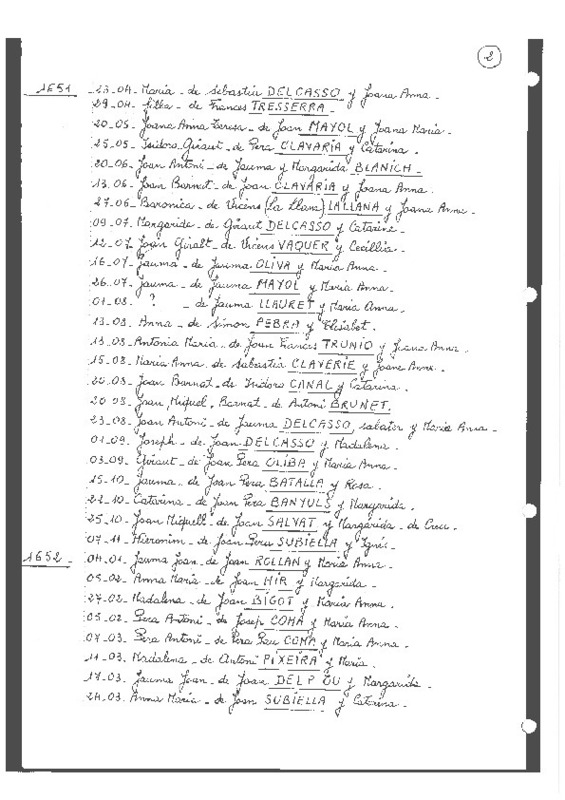 2
1651 23-04- Maria - de Sebastia DELCASSO y Joana Anna -
29-04- filha - de Frances TRESSERRA -
20-05- Joana Anna Teresa - de Joan MAYOL y Joana Maria -
25-05- Isidora, Giraut - de Pera CLAVARIA y Catarina.
20-06- Joan Antoni - de Jauma y Margarida BLANICH -
13-06- Joan Barnat - de Joan CLAVARIA y Joana Anna.
27-06- Baronica - de Vicens (la Llana) LALLANA y Joana Anna -
09-07- Margarida - de Giraut DELCASSO y Catarina -
12-07 Joan Giralt - de Vicens VAQUER y Cecillia -
16-07- Jauma - de Jauma OLIVA y Maria Anna -
26-07- Jauma - de Jauma MAYOL y Maria Anna -
01-08- ? - de Jauma LLAURET y Maria Anna -
13-08- Anna - de Simon PEBRA y Elisabet.
13-08- Antonia Maria - de Joan Frances TRUNIO y Joana Anna.
15-08- Maria Anna - de Sabastia CLAVERIE y Joana Anna.
20-08- Joan Barnat - de Isidora CANAL y Catarina.
20 08- Joan, Miquel, Barnat - de Antoni BRUNET.
23-08- Joan Antoni - de Jauma DELCASSO, sabater y Maria Anna -
01-09- Joseph - de Joan DELCASSO y Madalena.
03-09- Giraut - de Joan Pera OLIBA y Maria Anna -
15-10- Jauma - de Joan Pera BATALLA y Rosa.
22-10- Catarina - de Joan Pera BANYULS y Margarida.
25-10- Joan Miquell - de Joan SALVAT y Margarida - de Creu -
07-11- Hieronim - de Joan Pera SUBIELLA y Ignes -
1652 04-01- Jauma Joan - de Joan ROLLAN y Maria Anna.
05-02- Anna Maria - de Joan MIR y Margarida -
27-02- Madalena - de Joan BIGOT y Maria Anna.
05-02- Pera Antoni - de Josep COMA y Maria Anna -
07-03- Pera Antoni - de Pera Pau COMA y Maria Anna.
11-03- Madalena - de Antoni PIXEIRA y Maria.
17-03- Jauma Joan - de Joan DELPOU y Margarida -
24-03- Anna Maria - de Joan SUBIELLA y Catarina -